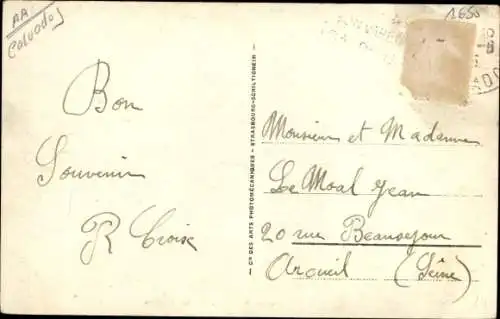 AA
Calvados
1650
Bon
Souvenir
R Croise
Cie DES ARTS PHOTOMÉCANIQUES - STRASBOURG-SCHILTIGHEIM
Monsieur et Madame
Le Moal Jean
20 rue Beausejour
Arcueil (Seine)